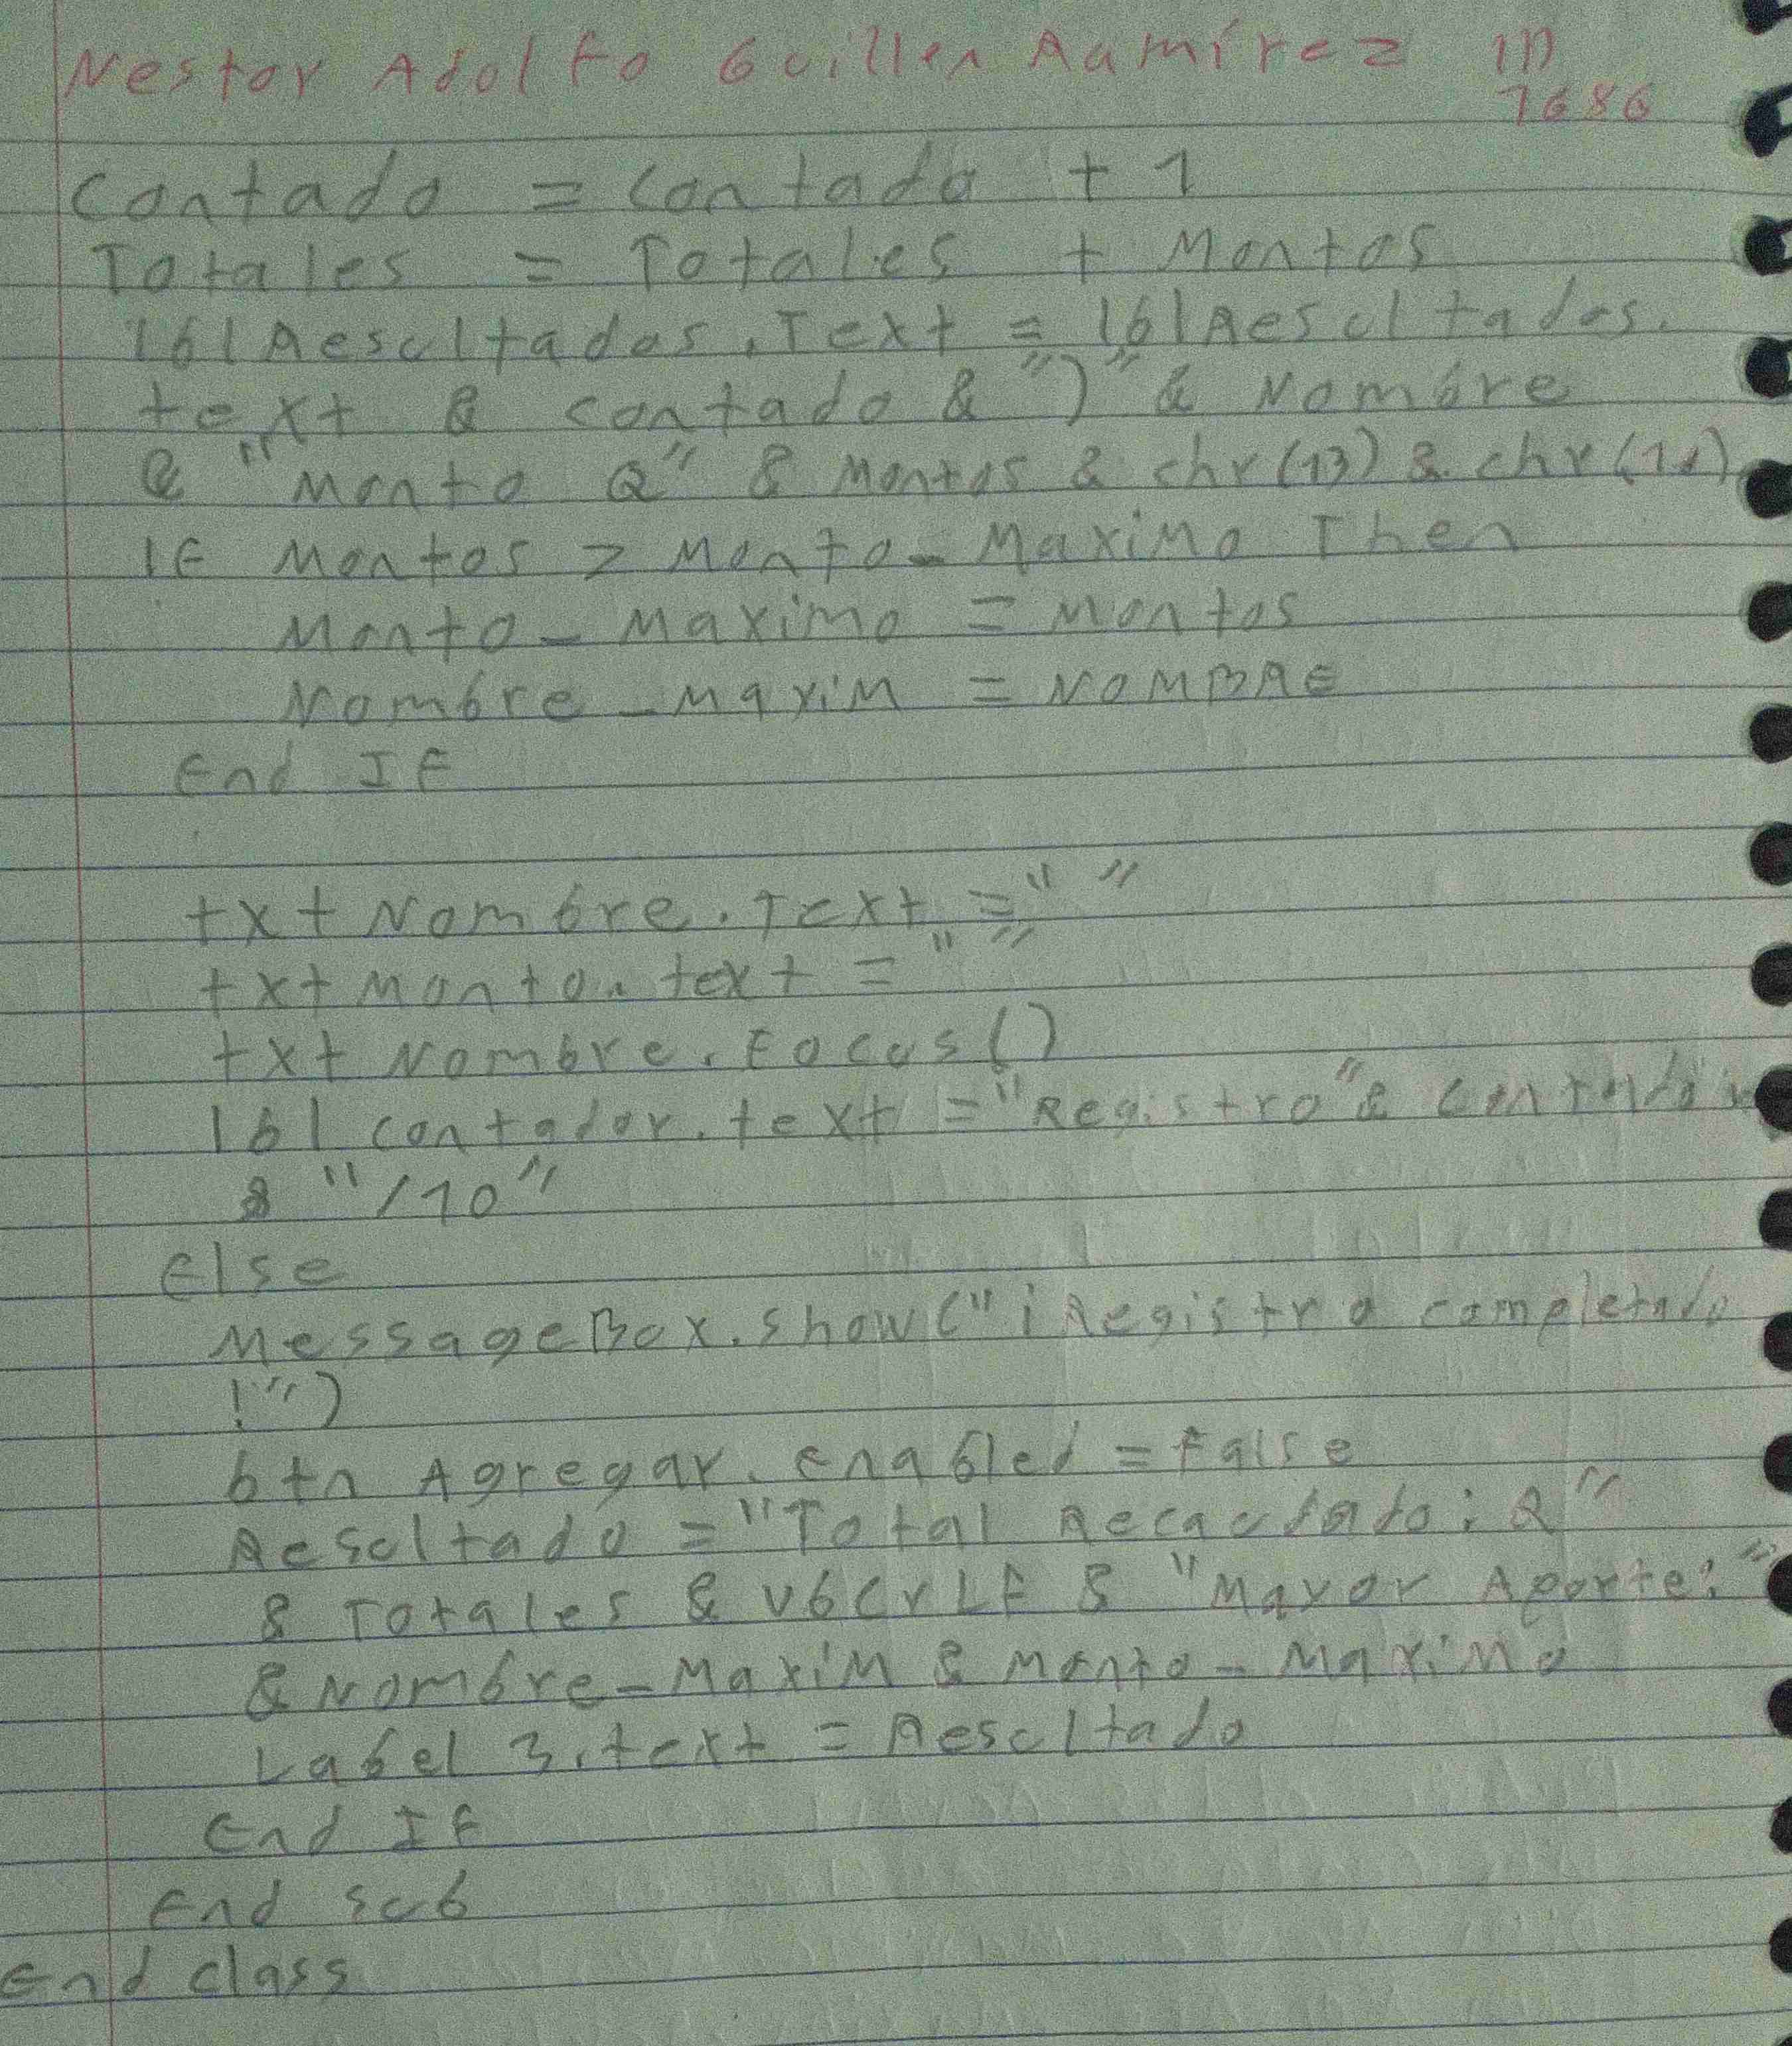 Nestor Adolfo Guillen Ramírez ID
7686
Contado = Contado + 1
Totales = Totales + Montos
lblRescltados.Text = lblRescltados.
text & contado & ")" & Nombre
& "Monto Q" & Montos & chr(13) & chr(10)
IF Montos > Monto_Maximo Then
Monto_Maximo = Montos
Nombre_Maxim = NOMBRE
End IF
txtNombre.Text = ""
txtMonto.text = ""
txtNombre.Focus()
lblcontador.text = "Registro" & Contado
& "/10"
Else
MessageBox.show("¡Registro completado
!")
btnAgregar.enabled = False
Rescltado = "Total Recactado: Q"
& Totales & VbCrLF & "Mayor Aporte:"
& Nombre_Maxim & Monto_Maximo
Label3.text = Rescltado
End IF
End sub
End class